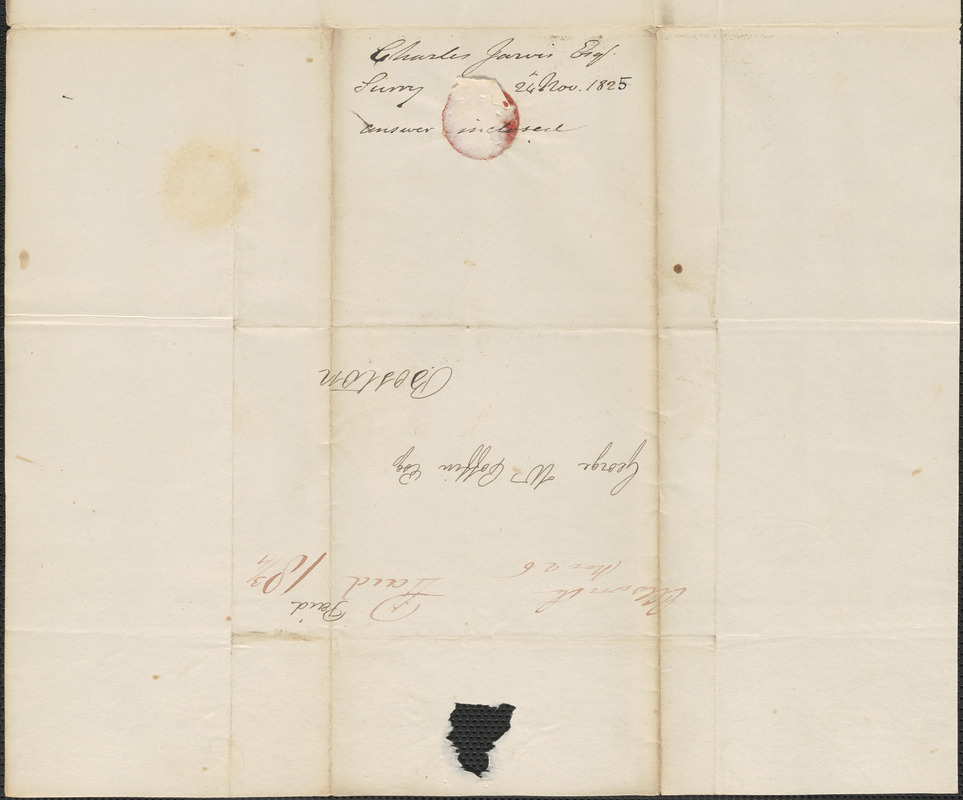 Charles Jarvis Esq.
Surry 24 Nov. 1825
answer inclosed
Ellsworth Paid 18 3/4
Nov 26
Paid
George W Coffin Esq
Boston